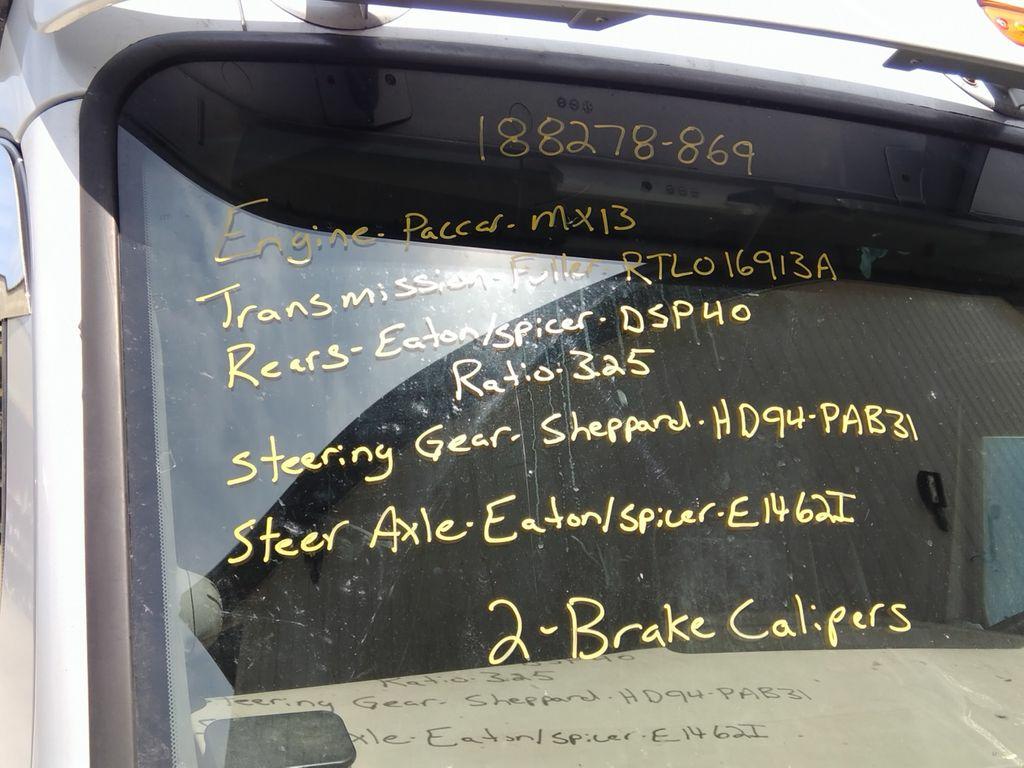 188278-869
Engine- Paccar- MX13
Transmission- Fuller- RTLO16913A
Rears- Eaton/spicer- DSP40
Ratio: 3.25
Steering Gear- Sheppard- HD94-PAB31
Steer Axle- Eaton/spicer- E1462I
2-Brake Calipers
Ratio: 3.25
teering Gear- Sheppard- HD94-PAB31
xle- Eaton/spicer- E1462I